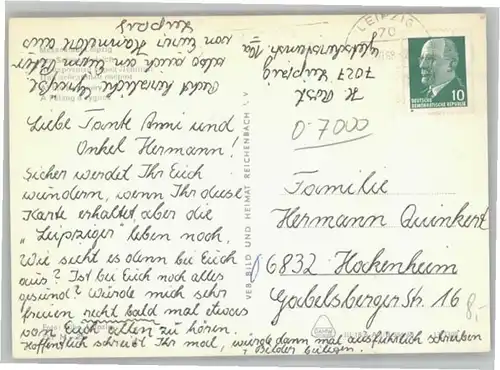 Liebe Tante Anni und
Onkel Hermann!
Sicher werdet Ihr Euch
wundern, wenn Ihr diese
Karte erhaltet, aber die
"Leipziger" leben noch.
Wie sieht es denn bei Euch
aus? Ist bei Euch noch alles
gesund? Würde mich sehr
freuen recht bald mal etwas
von Euch allen zu hören.
Hoffentlich schreibt Ihr mal, würde dann mal ausführlich schreiben
? Bilder beilegen.
Recht herzliche Grüße
also auch an Euren Peter
von Eurer Hannelore aus
Leipzig
H. Rost
7027 Leipzig
VEB BILD UND HEIMAT REICHENBACH i. V.
LEIPZIG
70
DEUTSCHE
DEMOKRATISCHE REPUBLIK
10
O-7000
Familie
Hermann Quinkert
6832 Hockenheim
Gabelsberger Str. 16
8,-